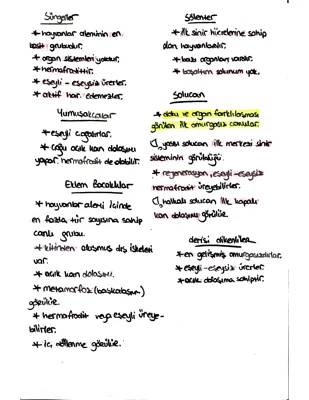 Süngerler
* hayvanlar aleminin en
basit grubudur.
* organ sistemleri yoktur.
* hermafrodittir.
* eşeyli - eşeysiz ürerler.
* aktif har. edemezler.
Yumuşakçalar
* eşeyli çoğalırlar.
* çoğu açık kan dolaşımı
yapar. hermafrodit de olabilir.
Eklem Bacaklılar
* hayvanlar alemi içinde
en fazla tür sayısına sahip
canlı grubu.
* kitinden oluşmuş dış iskeleri
var.
* açık kan dolaşımı.
* metamorfoz (başkalaşım)
görülür.
* hermafrodit veya eşeyli üreye-
bilirler.
* iç döllenme görülür.
Sölenter
* ilk sinir hücrelerine sahip
olan hayvanlardır.
* bazı organları vardır.
* boşaltım solunum yok.
Solucan
* doku ve organ farklılaşması
görülen ilk omurgasız canlılar.
yassı solucan ilk merkezi sinir
sisteminin görüldüğü.
* rejenerasyon, eşeyli - eşeysiz
hermafrodit üreyebilirler.
halkalı solucan ilk kapalı
kan dolaşımı görülür.
derisi dikenliler
* en gelişmiş omurgasızlardır.
* eşeyli - eşeysiz ürerler.
* açık dolaşıma sahiptir.